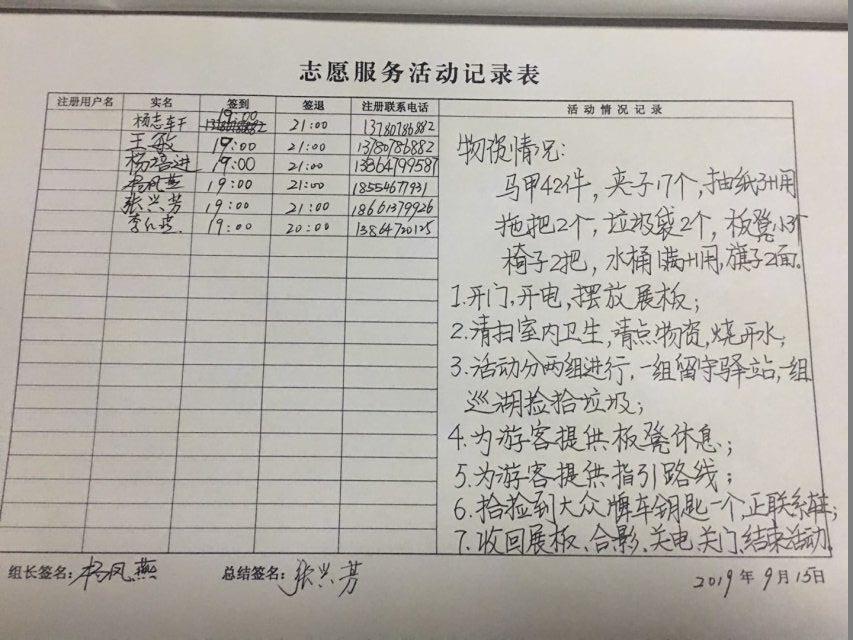 志愿服务活动记录表
注册用户名 实名 签到 签退 注册联系电话 活动情况记录
杨志轩 19:00 21:00 13780786882
王敏 19:00 21:00 13780786882
杨培进 19:00 21:00 13864799587
杨凤燕 19:00 21:00 18554677931
张兴芳 19:00 21:00 18661379926
李 19:00 20:00 13864720125
物资情况:
马甲42件,夹子17个,抽纸3
拖把2个,垃圾袋2个,板凳小3个
椅子2把,水桶1满1用,旗子2面。
1.开门,开电,摆放展板;
2.清扫室内卫生,请点物资,烧开水;
3.活动分两组进行,一组留守驿站,一组
巡湖捡拾垃圾;
4.为游客提供板凳休息;
5.为游客提供指引路线;
6.拾捡到大众牌车钥匙一个,正联系车主;
7.收回展板、合影、关电、关门、结束活动。
组长签名:杨凤燕 总结签名:张兴芳 2019年9月15日